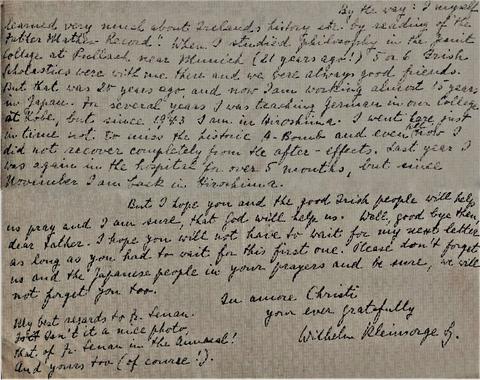 By the way: I myself
learned very much about Irelands history etc. by reading of the
Father Mathew Record! When I studied philosophy in the Jesuit
College at Pullach near Munich (21 years ago!) 5 or 6 Irish
Scholastics were with me there and we were always good friends.
But that was 20 years ago and now I am working almost 15 years
in Japan. For several years I was teaching German in our College
at Kobe, but since 1943 I am in Hiroshima. I went here just
in time not to miss the historic A-Bomb and even now I
did not recover completely from the after-effects. Last year I
was again in the hospital for over 5 months, but since
November I am back in Hiroshima.
But I hope you and the good Irish people will help
us pray and I am sure, that God will help us. Well, good bye then,
dear Father. I hope you will not have to wait for my next letter
as long as you had to wait for this first one. Please don't forget
us and the Japanese people in your prayers and be sure, we will
not forget you too.
In amore Christi
your ever gratefully
Wilhelm Kleinsorge Sj.
My best regards to Fr. Senan.
Isn't it a nice photo,
that of Fr. Senan in the Annual!
And yours too (of course!).